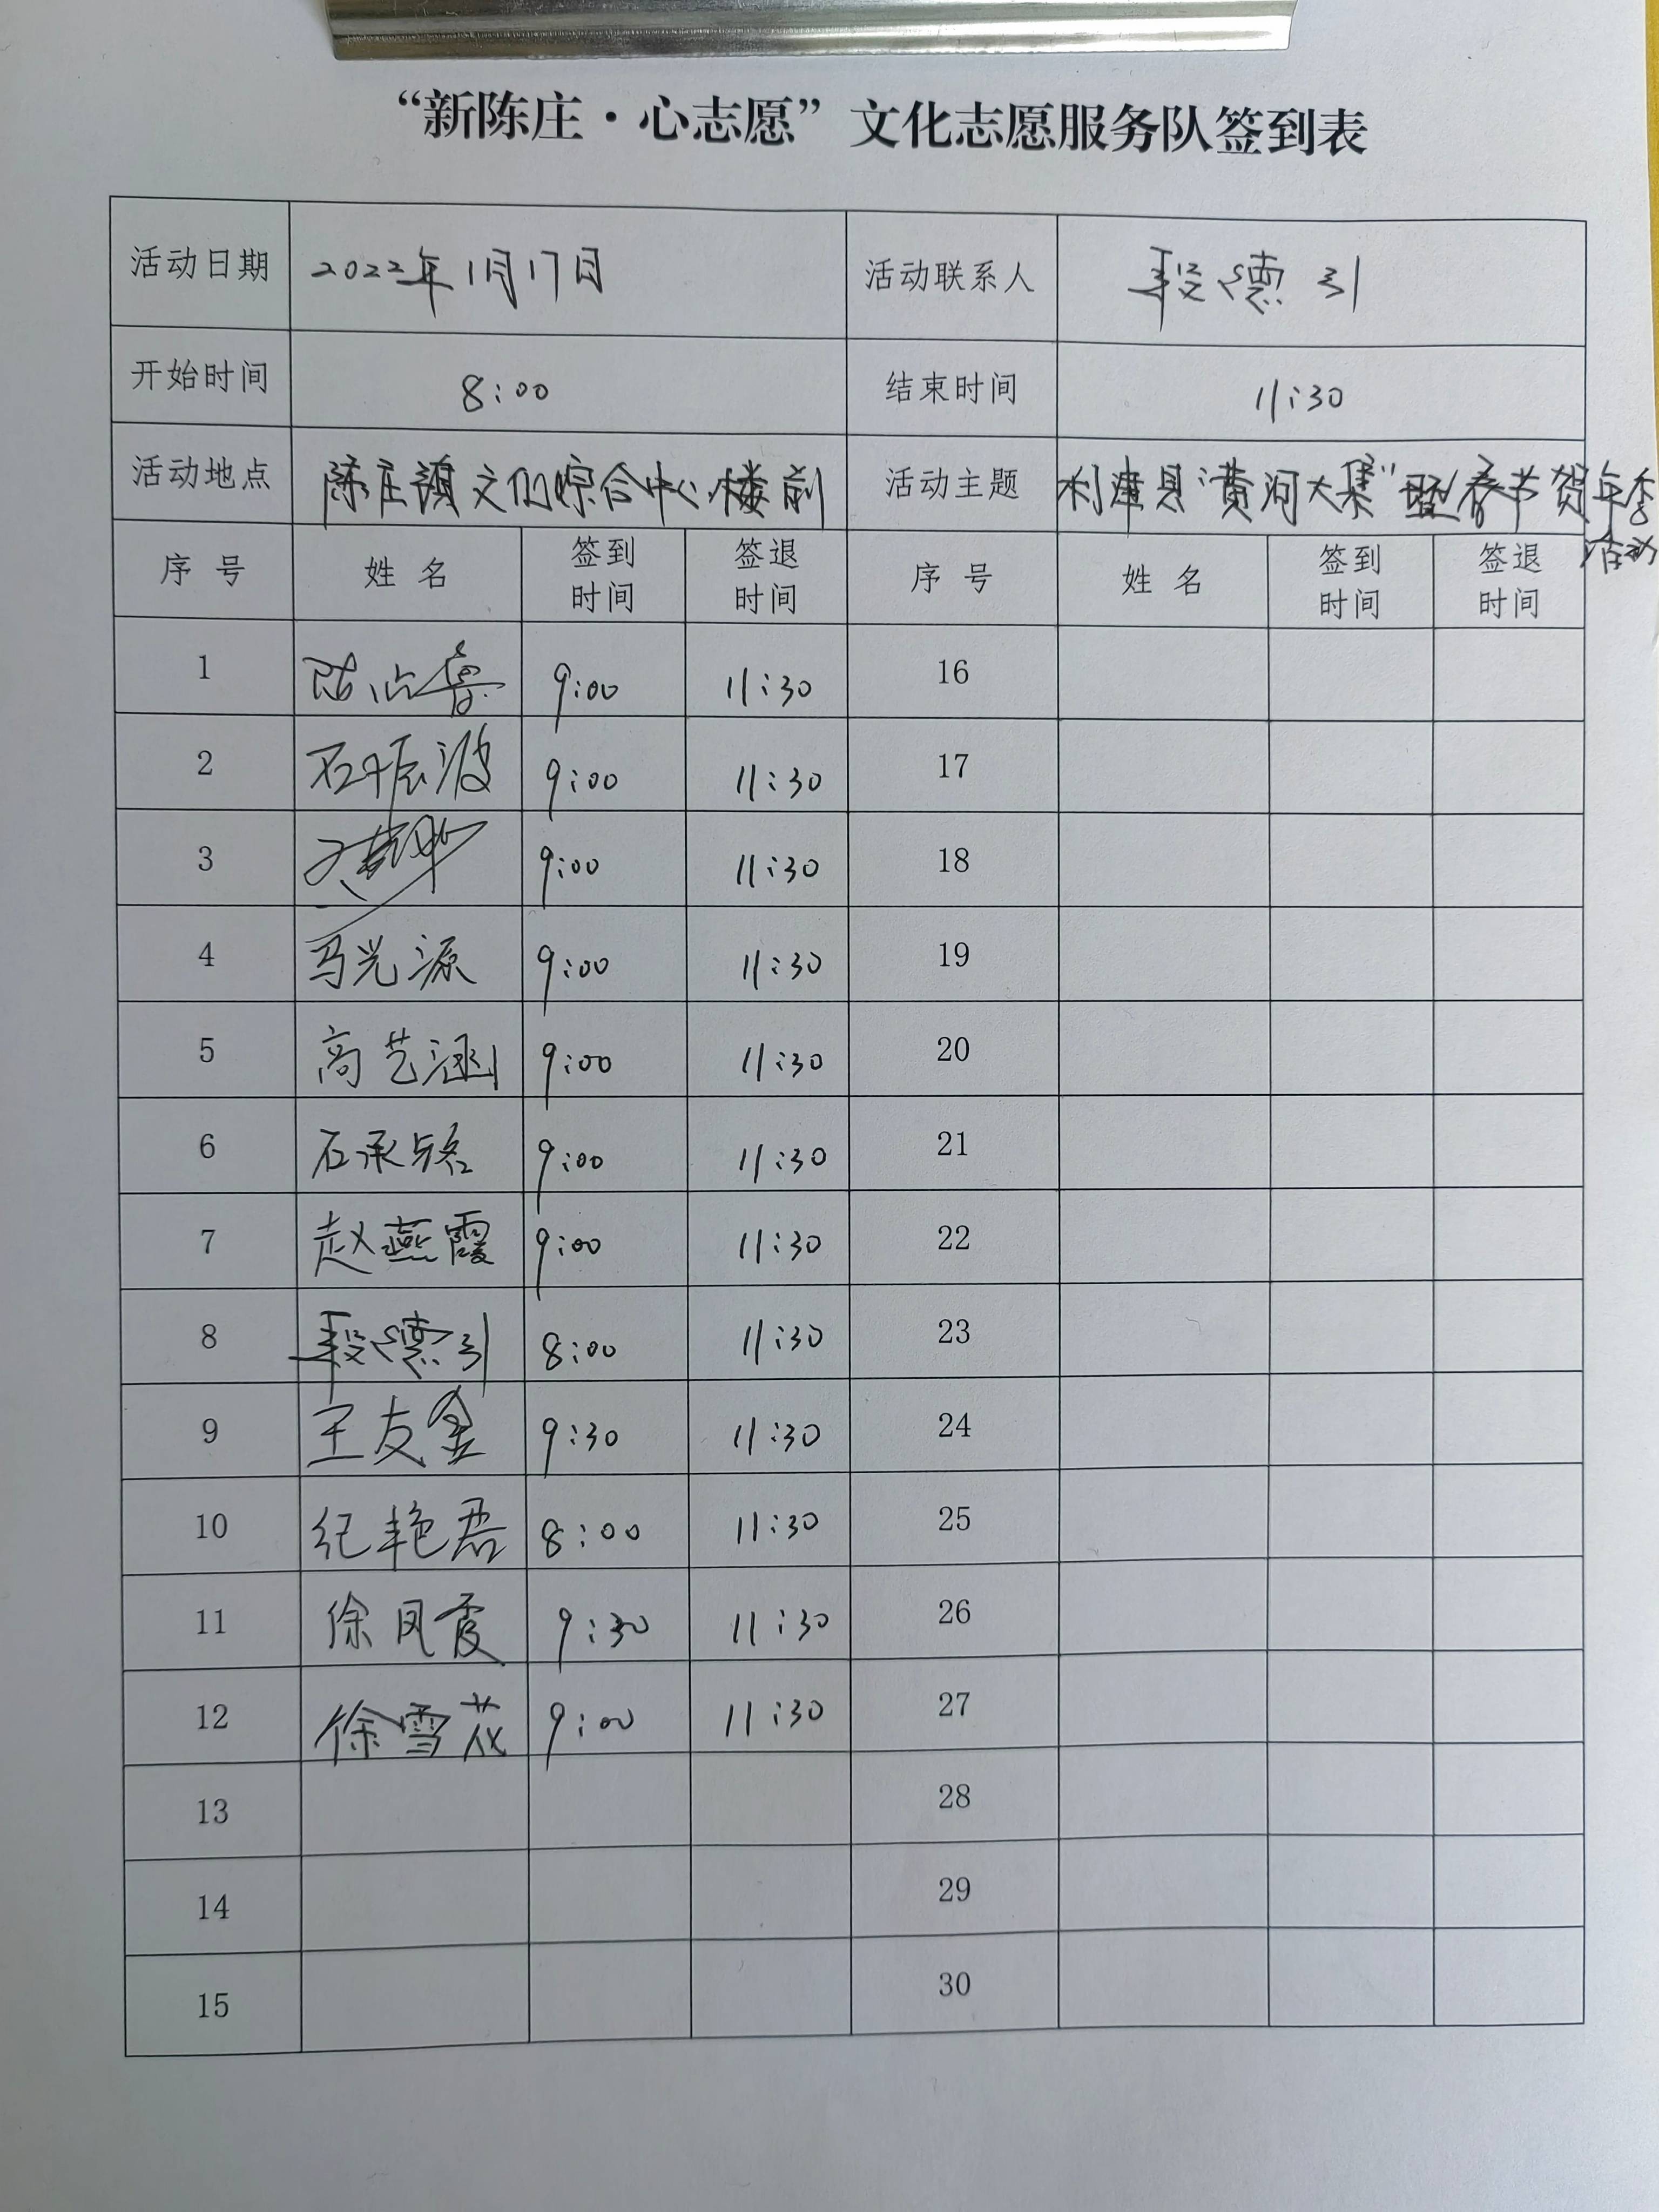 “新陈庄·心志愿”文化志愿服务队签到表
活动日期 2022年1月17日 活动联系人 段德引
开始时间 8:00 结束时间 11:30
活动地点 陈庄镇文化综合中心楼前 活动主题 利津县“黄河大集”暨春节贺年季
活动
序号 姓名 签到时间 签退时间 序号 姓名 签到时间 签退时间
1 9:00 11:30 16
2 石振波 9:00 11:30 17
3 9:00 11:30 18
4 马光源 9:00 11:30 19
5 高艺涵 9:00 11:30 20
6 石承铭 9:00 11:30 21
7 赵燕霞 9:00 11:30 22
8 段德引 8:00 11:30 23
9 王友金 9:30 11:30 24
10 纪艳君 8:00 11:30 25
11 徐凤霞 9:30 11:30 26
12 徐雪花 9:00 11:30 27
13 28
14 29
15 30